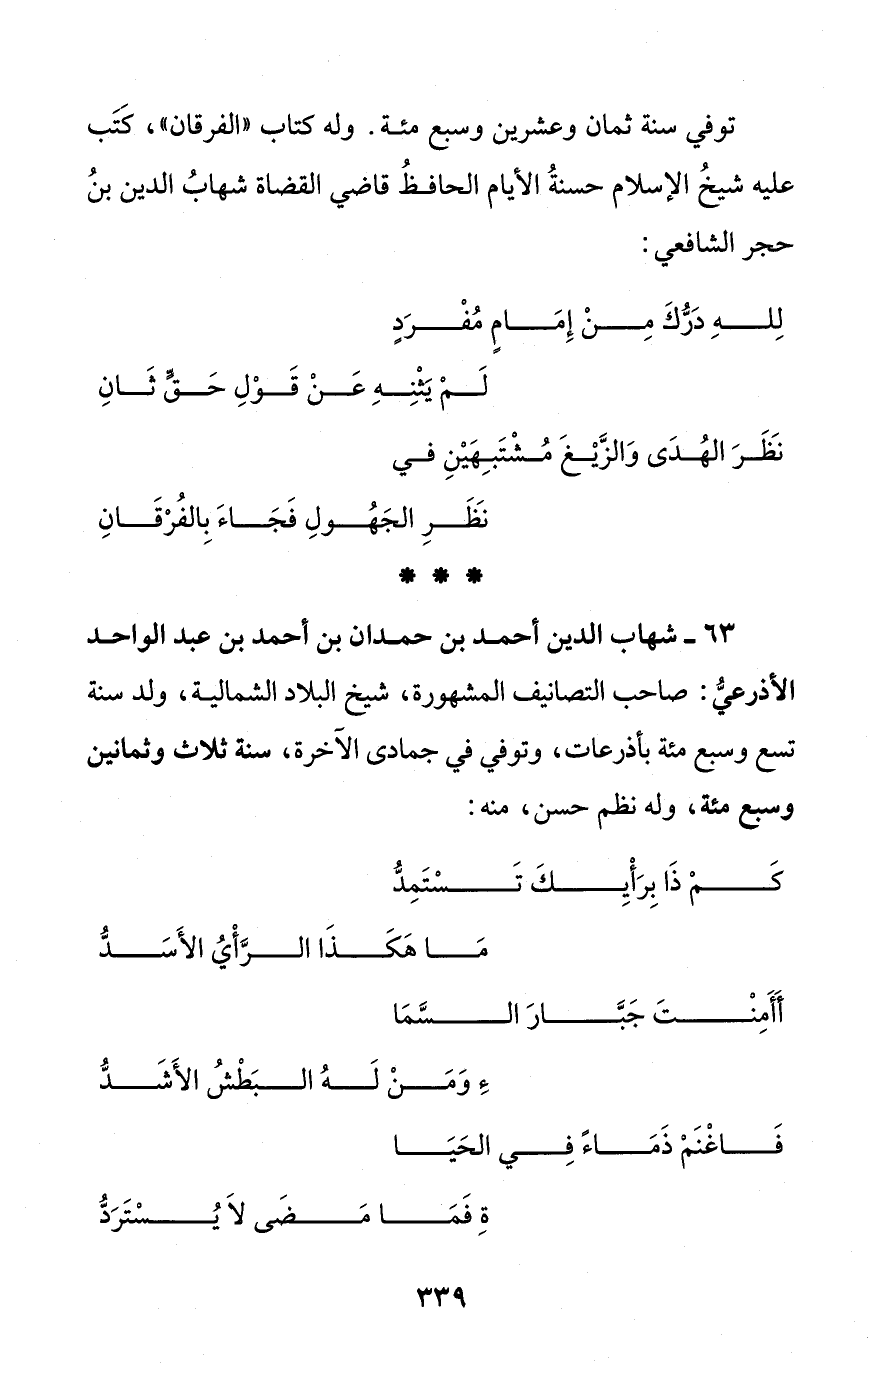 توفي سنة ثمان وعشرين وسبع مئة. وله كتاب «الفرقان»، كَتَب
عليه شيخُ الإسلام حسنةُ الأيام الحافظُ قاضي القضاة شهابُ الدين بنُ
حجر الشافعي:
لِلهِ دَرُّكَ مِنْ إِمَامٍ مُفْرَدٍ
لَمْ يَثْنِهِ عَنْ قَوْلِ حَقٍّ ثَانِ
نَظَرَ الهُدَى وَالزَّيْغَ مُشْتَبِهَيْنِ في
نَظَرِ الجَهُولِ فَجَاءَ بِالفُرْقَانِ
* * *
٦٣ ـ شهاب الدين أحمد بن حمدان بن أحمد بن عبد الواحد
الأذرعيُّ: صاحب التصانيف المشهورة، شيخ البلاد الشمالية، ولد سنة
تسع وسبع مئة بأذرعات، وتوفي في جمادى الآخرة، سنة ثلاث وثمانين
وسبع مئة، وله نظم حسن، منه:
كَمْ ذَا بِرَأْيِكَ تَسْتَمِدُّ
مَا هَكَذَا الرَّأْيُ الأَسَدُّ
أَأَمِنْتَ جَبَّارَ السَّمَا
ءِ وَمَنْ لَهُ البَطْشُ الأَشَدُّ
فَاغْنَمْ ذَمَاءً فِي الحَيَا
ةِ فَمَا مَضَى لاَ يُسْتَرَدُّ
٣٣٩